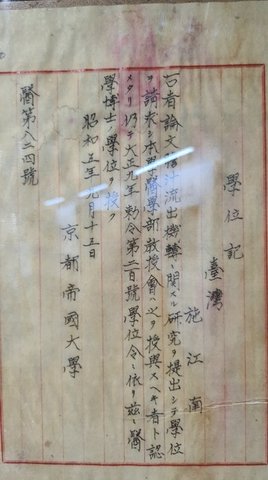 學位記
臺灣 施江南
右者論文膽汁流出機轉ニ關スル研究ヲ提出シテ學位
ヲ請求シ本學醫學部教授會ハ之ヲ授與スヘキ者ト認
メタリ仍テ大正九年勅令第二百號學位令ニ依リ茲ニ醫
學博士ノ學位ヲ授ク
昭和五年九月十五日
京都帝國大學
醫第八二四號